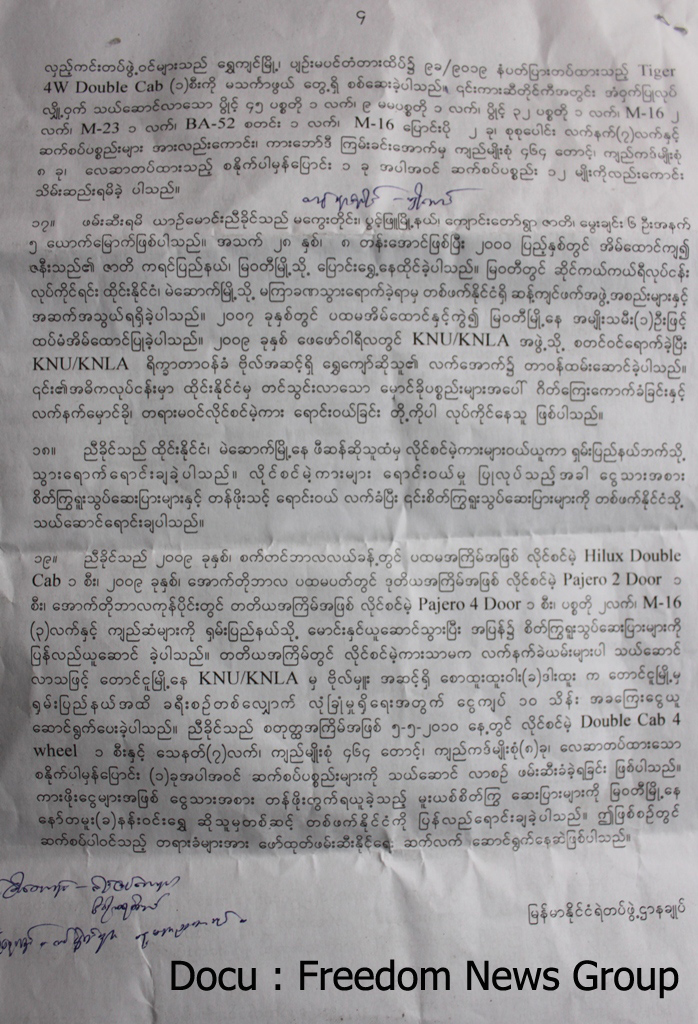 ၄
လှည့်ကင်းတပ်ဖွဲ့ဝင်များသည် ရွှေကျင်မြို့၊ ပျဉ်းမပင်တံတားထိပ်၌ ၉ခ/၉၀၁၉ နံပတ်ပြားတပ်ထားသည့် Tiger
4W Double Cab (၁)စီးကို မသင်္ကာဖွယ် တွေ့ရှိ စစ်ဆေးခဲ့ပါသည်။ ၎င်းကားဆီတိုင်ကီအတွင်း အံဝှက်ပြုလုပ်
လျှို့ဝှက် သယ်ဆောင်လာသော ပွိုင့် ၄၅ ပစ္စတို ၁ လက်၊ ၉ မမပစ္စတို ၁ လက်၊ ပွိုင့် ၃၂ ပစ္စတို ၁ လက်၊ M-16 ၂
လက်၊ M-23 ၁ လက်၊ BA-52 စတင်း ၁ လက်၊ M-16 ပြောင်းပို ၂ ခု၊ စုစုပေါင်း လက်နက်(၇)လက်နှင့်
ဆက်စပ်ပစ္စည်းများ အားလည်းကောင်း၊ ကားဘော်ဒီ ကြမ်းခင်းအောက်မှ ကျည်မျိုးစုံ ၄၆၄ တောင့်၊ ကျည်ကဒ်မျိုးစုံ
၈ ခု၊ လေဆာတပ်ထားသည့် စနိုက်ပါမှန်ပြောင်း ၁ ခု အပါအဝင် ဆက်စပ်ပစ္စည်း ၁၂ မျိုးကိုလည်းကောင်း
သိမ်းဆည်းရမိခဲ့ ပါသည်။
၁၇။ ဖမ်းဆီးရမိ ယာဉ်မောင်းညီခိုင်သည် မကွေးတိုင်း၊ ပွင့်ဖြူမြို့နယ်၊ ကျောင်းတော်ရွာ ဇာတိ၊ မွေးချင်း ၆ ဦးအနက်
၅ ယောက်မြောက်ဖြစ်ပါသည်။ အသက် ၂၈ နှစ်၊ ၈ တန်းအောင်ဖြစ်ပြီး ၂၀၀၀ ပြည့်နှစ်တွင် အိမ်ထောင်ကျ၍
ဇနီးသည်၏ ဇာတိ ကရင်ပြည်နယ်၊ မြဝတီမြို့သို့ ပြောင်းရွှေ့နေထိုင်ခဲ့ပါသည်။ မြဝတီတွင် ဆိုင်ကယ်ကယ်ရီလုပ်ငန်း
လုပ်ကိုင်ရင်း ထိုင်းနိုင်ငံ၊ မဲဆောက်မြို့သို့ မကြာခဏသွားရောက်ခဲ့ရာမှ တစ်ဖက်နိုင်ငံရှိ ဆန့်ကျင်ဖက်အဖွဲ့အစည်းများနှင့်
အဆက်အသွယ်ရရှိခဲ့ပါသည်။ ၂၀၀၇ ခုနှစ်တွင် ပထမအိမ်ထောင်နှင့်ကွဲ၍ မြဝတီမြို့နေ အမျိုးသမီး(၁)ဦးဖြင့်
ထပ်မံအိမ်ထောင်ပြုခဲ့ပါသည်။ ၂၀၀၉ ခုနှစ် ဖေဖော်ဝါရီလတွင် KNU/KNLA အဖွဲ့သို့ စတင်ဝင်ရောက်ခဲ့ပြီး
KNU/KNLA ရိက္ခာတာဝန်ခံ ဗိုလ်အဆင့်ရှိ ရွှေကျော်ဆိုသူ၏ လက်အောက်၌ တာဝန်ထမ်းဆောင်ခဲ့ပါသည်။
၎င်း၏အဓိကလုပ်ငန်းမှာ ထိုင်းနိုင်ငံမှ တင်သွင်းလာသော မှောင်ခိုပစ္စည်းများအပေါ် ဂိတ်ကြေးကောက်ခံခြင်းနှင့်
လက်နက်မှောင်ခို၊ တရားမဝင်လိုင်စင်မဲ့ကား ရောင်းဝယ်ခြင်း တို့ကိုပါ လုပ်ကိုင်နေသူ ဖြစ်ပါသည်။
၁၈။ ညီခိုင်သည် ထိုင်းနိုင်ငံ၊ မဲဆောက်မြို့နေ ဖီဆန်ဆိုသူထံမှ လိုင်စင်မဲ့ကားများဝယ်ယူကာ ရှမ်းပြည်နယ်ဘက်သို့
သွားရောက်ရောင်းချခဲ့ပါသည်။ လိုင်စင်မဲ့ကားများ ရောင်းဝယ်မှု ပြုလုပ်သည့်အခါ ငွေသားအစား
စိတ်ကြွရူးသွပ်ဆေးပြားများနှင့် တန်ဖိုးသင့် ရောင်းဝယ် လက်ခံပြီး ၎င်းစိတ်ကြွရူးသွပ်ဆေးပြားများကို တစ်ဖက်နိုင်ငံသို့
သယ်ဆောင်ရောင်းချပါသည်။
၁၉။ ညီခိုင်သည် ၂၀၀၉ ခုနှစ်၊ စက်တင်ဘာလလယ်ခန့်တွင် ပထမအကြိမ်အဖြစ် လိုင်စင်မဲ့ Hilux Double
Cab ၁ စီး၊ ၂၀၀၉ ခုနှစ်၊ အောက်တိုဘာလ ပထမပတ်တွင် ဒုတိယအကြိမ်အဖြစ် လိုင်စင်မဲ့ Pajero 2 Door ၁
စီး၊ အောက်တိုဘာလကုန်ပိုင်းတွင် တတိယအကြိမ်အဖြစ် လိုင်စင်မဲ့ Pajero 4 Door ၁ စီး၊ ပစ္စတို ၂လက်၊ M-16
(၃)လက်နှင့် ကျည်ဆံများကို ရှမ်းပြည်နယ်သို့ မောင်းနှင်ယူဆောင်သွားပြီး အပြန်၌ စိတ်ကြွရူးသွပ်ဆေးပြားများကို
ပြန်လည်ယူဆောင် ခဲ့ပါသည်။ တတိယအကြိမ်တွင် လိုင်စင်မဲ့ကားသာမက လက်နက်ခဲယမ်းများပါ သယ်ဆောင်
လာသဖြင့် တောင်ငူမြို့နေ KNU/KNLA မှ ဗိုလ်မှူး အဆင့်ရှိ စောထူးထူးဝါး(ခ)ဒါးထူး က တောင်ငူမြို့မှ
ရှမ်းပြည်နယ်အထိ ခရီးစဉ်တစ်လျှောက် လုံခြုံမှုရှိရေးအတွက် ငွေကျပ် ၁၀ သိန်း အခကြေးငွေယူ
ဆောင်ရွက်ပေးခဲ့ပါသည်။ ညီခိုင်သည် စတုတ္ထအကြိမ်အဖြစ် ၅-၅-၂၀၁၀ နေ့တွင် လိုင်စင်မဲ့ Double Cab 4
wheel ၁ စီးနှင့် သေနတ်(၇)လက်၊ ကျည်မျိုးစုံ ၄၆၄ တောင့်၊ ကျည်ကဒ်မျိုးစုံ(၈)ခု၊ လေဆာတပ်ထားသော
စနိုက်ပါမှန်ပြောင်း (၁)ခုအပါအဝင် ဆက်စပ်ပစ္စည်းများကို သယ်ဆောင် လာစဉ် ဖမ်းဆီးခံခဲ့ရခြင်း ဖြစ်ပါသည်။
ကားဖိုးငွေများအဖြစ် ငွေသားအစား တန်ဖိုးတွက်ရယူခဲ့သည့် မူးယစ်စိတ်ကြွ ဆေးပြားများကို မြဝတီမြို့နေ
နော်တမူး(ခ)နန်းဝင်းရွှေ ဆိုသူမှတစ်ဆင့် တစ်ဖက်နိုင်ငံကို ပြန်လည်ရောင်းချခဲ့ပါသည်။ ဤဖြစ်စဉ်တွင်
ဆက်စပ်ပါဝင်သည့် တရားခံများအား ဖော်ထုတ်ဖမ်းဆီးနိုင်ရေး ဆက်လက် ဆောင်ရွက်နေဆဲဖြစ်ပါသည်။
မြန်မာနိုင်ငံရဲတပ်ဖွဲ့ဌာနချုပ်
Docu : Freedom News Group